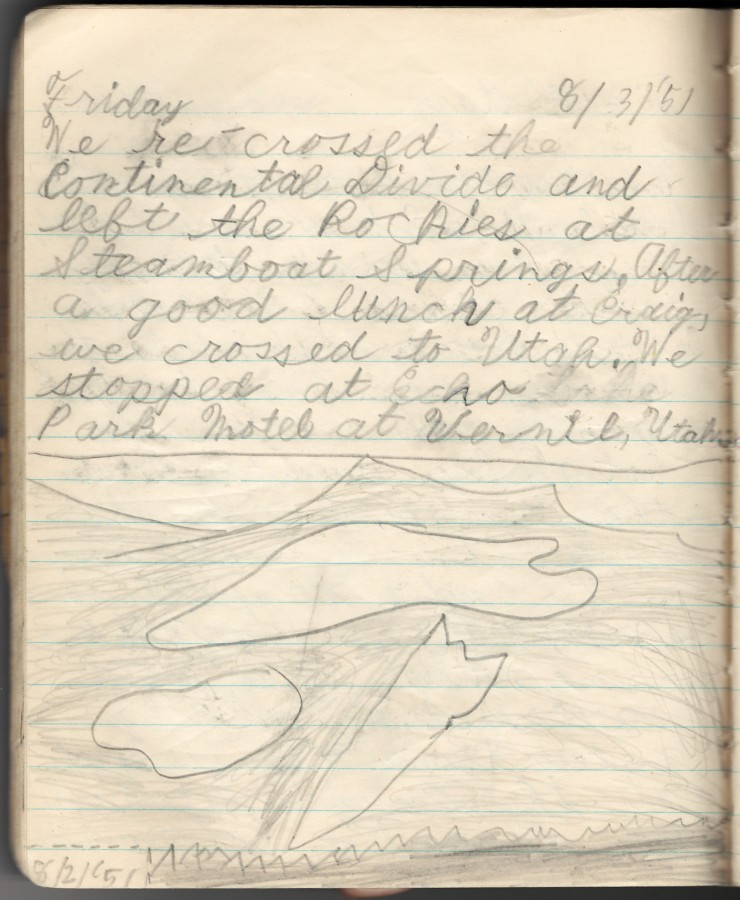 Friday 8/3/'51
We re-crossed the
Continental Divide and
left the Rockies at
Steamboat Springs. After
a good lunch at Craig,
we crossed to Utah. We
stopped at Echo
Park Motel at Vernel, Utah
8/2/'51